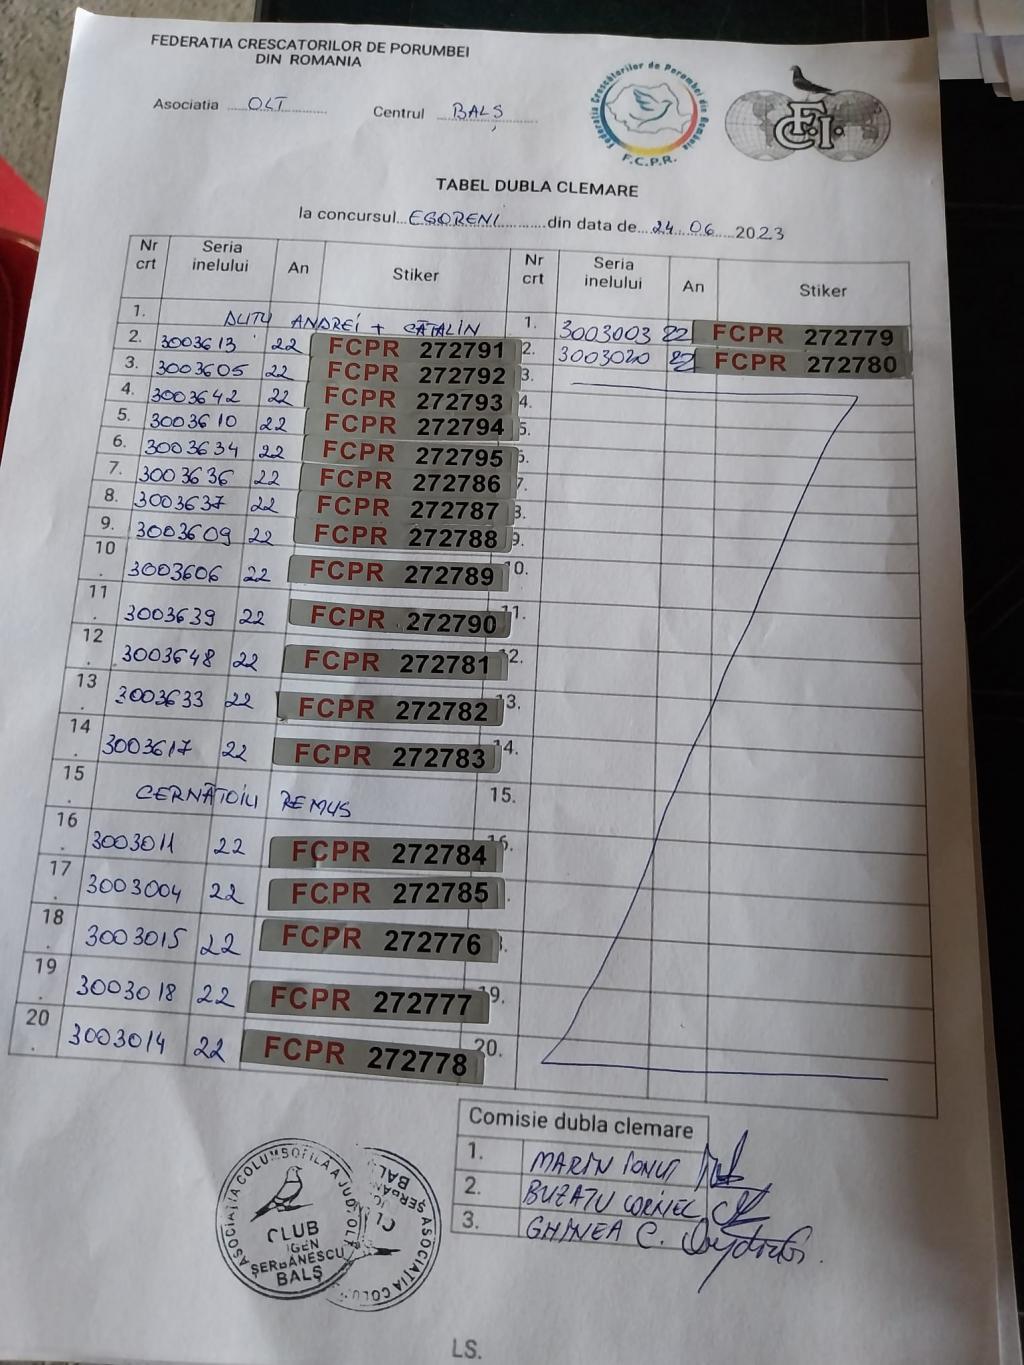 FEDERATIA CRESCATORILOR DE PORUMBEI
DIN ROMANIA
Asociatia OLT Centrul BALȘ
Federatia Crescătorilor de Porumbei din România
F.C.P.R.
F.C.I.
TABEL DUBLA CLEMARE
la concursul EGORENI din data de 24 06 2023
Nr crt Seria inelului An Stiker Nr crt Seria inelului An Stiker
1. DUTU ANDREI + CĂTĂLIN 1. 3003003 22 FCPR 272779
2. 3003613 22 FCPR 272791 2. 3003020 22 FCPR 272780
3. 3003605 22 FCPR 272792 3.
4. 3003642 22 FCPR 272793 4.
5. 3003610 22 FCPR 272794 5.
6. 3003634 22 FCPR 272795 6.
7. 3003636 22 FCPR 272786 7.
8. 3003637 22 FCPR 272787 8.
9. 3003609 22 FCPR 272788 9.
10. 3003606 22 FCPR 272789 10.
11. 3003639 22 FCPR 272790 11.
12. 3003648 22 FCPR 272781 12.
13. 3003633 22 FCPR 272782 13.
14. 3003617 22 FCPR 272783 14.
15. CERNĂTOIU REMUS 15.
16. 3003011 22 FCPR 272784 16.
17. 3003004 22 FCPR 272785
18. 3003015 22 FCPR 272776
19. 3003018 22 FCPR 272777 19.
20. 3003014 22 FCPR 272778 20.
Comisie dubla clemare
1. MARIN IONUT
2. BUZATU CORNEL
3. GHINEA C.
ASOCIATIA COLUMBOFILA A JUD OLT
CLUB
IGEN
ȘERBĂNESCU
BALȘ
LS.